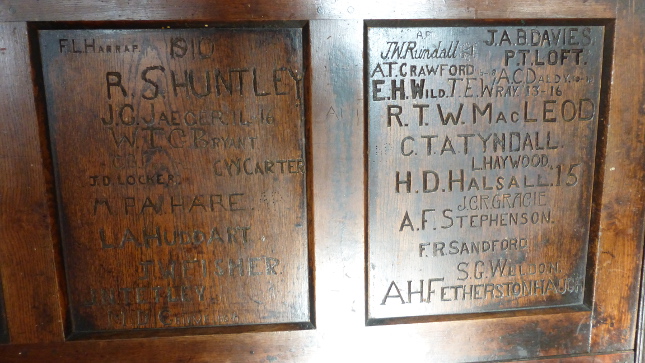 F.L.HARRAP
1910
R.S.HUNTLEY
J.C.JAEGER. 16
W.T.C.BRYANT
C.W.CARTER
J.D.LOCKER.
M.P.A.HARE.
L.A.HUDDART.
T.W.FISHER.
J.W.Rundall
J.A.B.DAVIES.
P.T.LOFT.
A.T.CRAWFORD
E.H.WILD.
T.E.WRAY 13-16
R.T.W.MACLEOD
C.T.A.TYNDALL.
L.HAYWOOD.
H.D.HALSALL.15
J.C.R.GRACIE
A.F.STEPHENSON.
F.R.SANDFORD
S.G.WELDON
A.H.FETHERSTONHAUGH